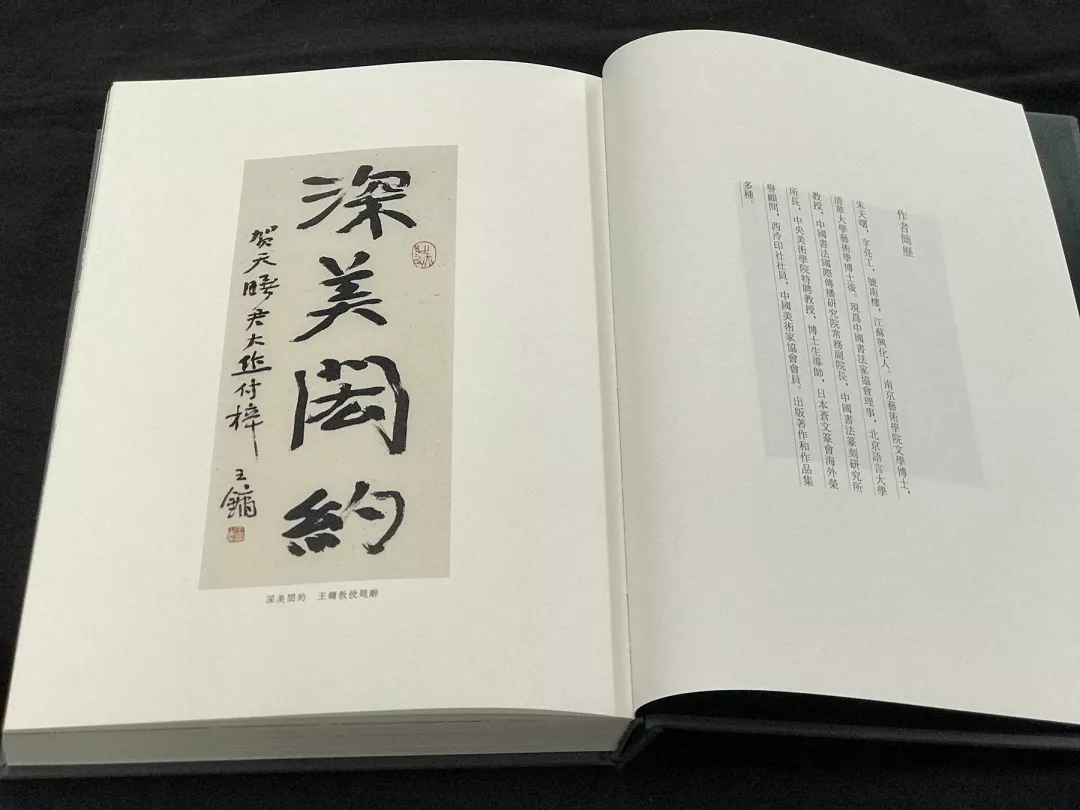 作者簡歷
朱天曙，字亮工，號南樓，江蘇興化人。南京藝術學院文學博士，
清華大學藝術學博士後。現爲中國書法家協會理事，北京語言大學
教授，中國書法國際傳播研究院常務副院長，中國書法篆刻研究所
所長，中央美術學院特聘教授，博士生導師，日本蒼文篆會海外榮
譽顧問，西泠印社社員，中國美術家協會會員。出版著作和作品集
多種。
深美閎約
賀天曙君大作付梓
王鏞
深美閎約　王鏞教授題辭